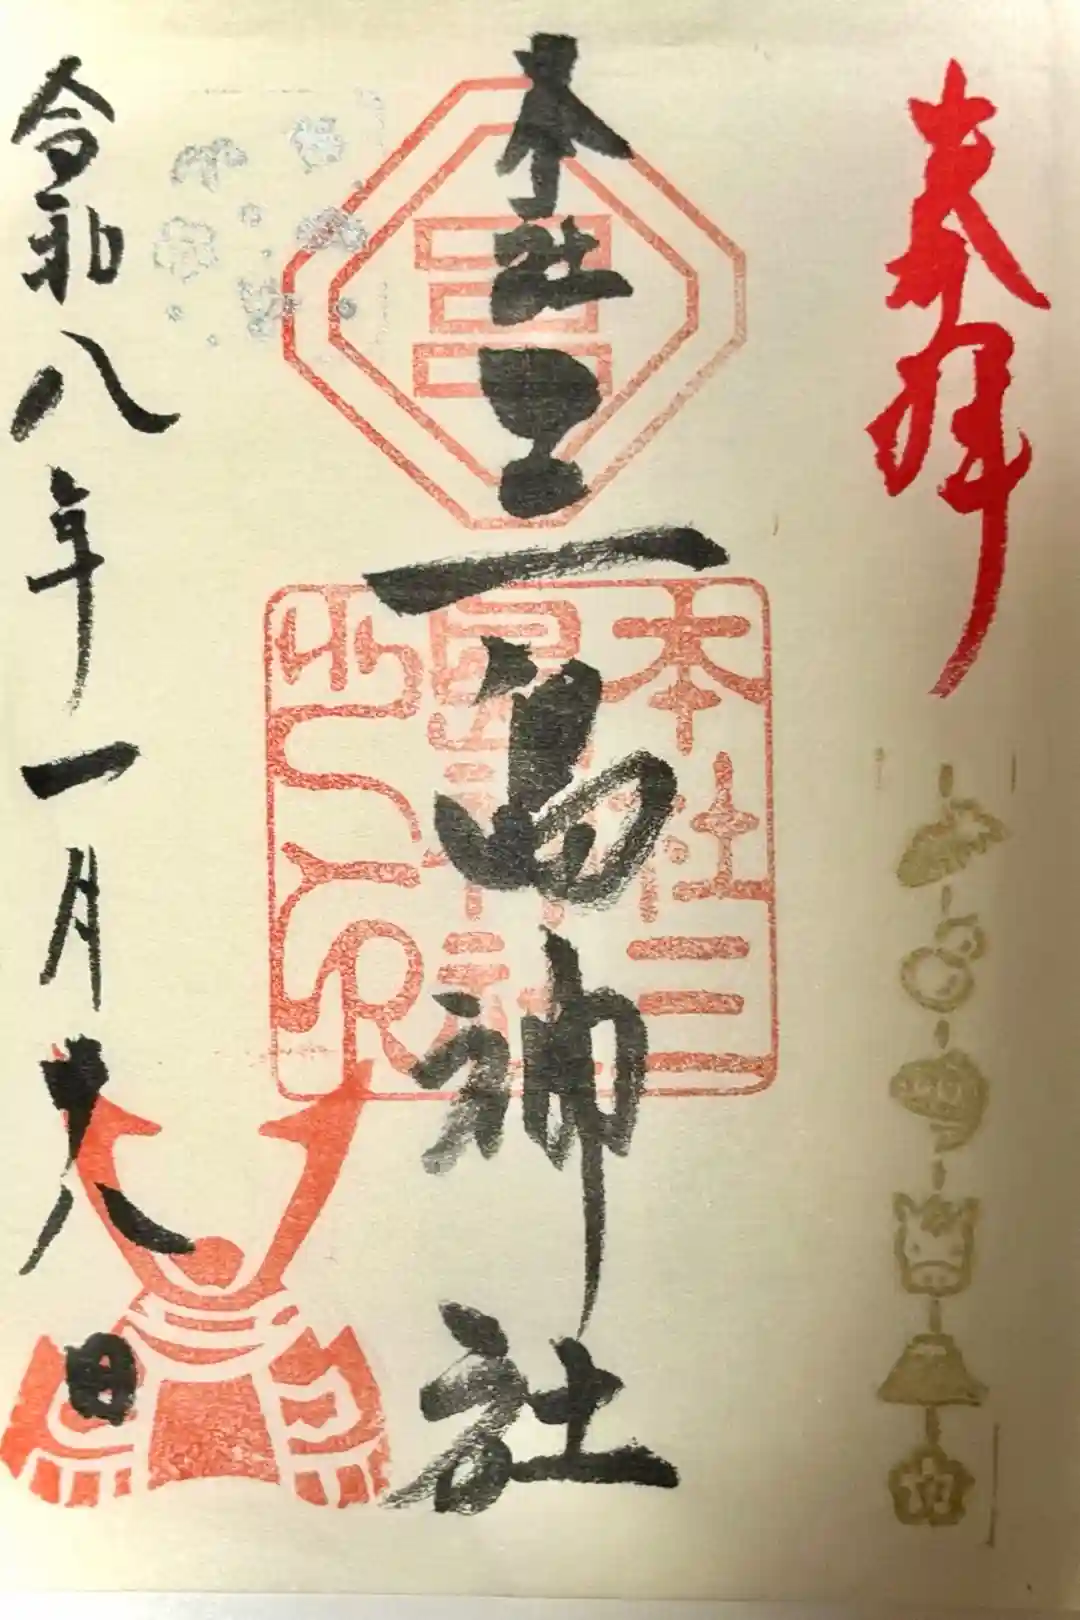 奉拝
本社三島神社
本社三
令和八年一月十八日